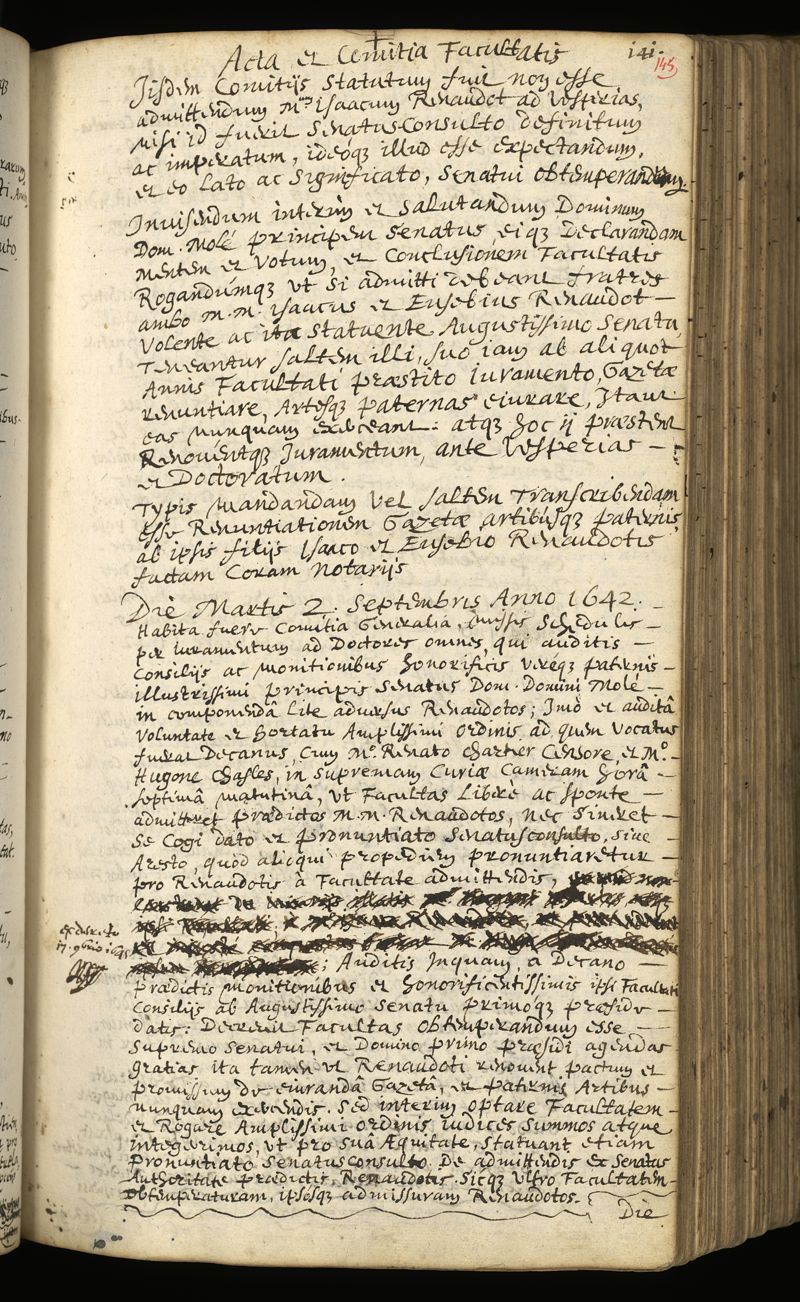 Acta et Comitia Facultatis
141.
145
Jisdem Comitijs statutum fuit non esse
admittendum M.um Isaacum Renaudot ad Vesperias,
Nisi id fuerit Senatus-Consulto definitum
ac imperatum, ideóq; illud esse expectandum,
et eo Lato ac Significato, Senatui obtemperandum.
Invisendum interim et Salutandum Dominum
Dom. Molé principem Senatus, eiq; Declarandam
Mentem et Votum, et Conclusionem Facultatis
Rogandúmq; vt si admitti debeant fratres
ambo M. M. Isaacus et Eusebius Renaudot —
Volente ac ita Statuente Augustissimo Senatu,
Teneantur saltem illi, suo iam ab aliquot
Annis Facultati præstito iuramento, Gazetæ
renuntiare, Artesq; paternas eiurare, Itaut
eas nunquam exerceant: atq; hoc ij præstent
Renoventq; Iuramentum, ante Vesperias —
et Doctoratum.
Typis mandandam vel saltem Transcribendam
esse Renuntiationem Gazetæ artibusq; paternis,
ab ipsis filijs Isaaco et Eusebio Renaudotis
factam Coram Notarijs
Die Martis 2. Septembris Anno 1642. —
Habita fuere Comitia Generalia, missis Schedulis —
per Iuramentum ad Doctores omnes, qui auditis —
Consilijs ac monitionibus honorificis veréq; paternis —
illustrissimi principis Senatus Dom. Domini Molé —
in componendâ lite adversus Renaudotos; Imò et auditâ
Voluntate et hortatu Amplissimi Ordinis, ad quem Vocatus
fuerat Decanus, Cum M.o Renato Chartier Censore, et M.o —
Hugone Chasles, in Supremam Curiæ Cameram horâ —
septimâ matutinâ, vt Facultas Libere ac sponte —
admitteret prædictos M. M. Renaudotos, nec sineret —
se Cogi dato et pronuntiato Senatusconsulto, sive —
Aresto, quod alioqui propediem pronuntiaretur —
pro Renaudotis à Facultate admittendis,
ex decreto
; Auditis Inquam, a Decano —
prædictis monitionibus et honorificentissimis ipsi Facultati
Consilijs ab Augustissimo Senatu primóq; præside —
datis: Decrevit Facultas obtemperandum esse —
Supremo Senatui, et Domino primo præsidi agendas
gratias ita tamen vt Renaudoti renovent pactum et
promissum de eiurandâ Gazetâ, et paternis Artibus —
nunquam exercendis. Sed interim optare Facultatem —
et Rogare Amplissimi ordinis iudices summos atque
integerimos, vt pro suâ Æquitate, statuant etiam
Pronuntiato Senatusconsulto De admittendis ex Senatus
Authoritate prædictis, Renaudotis. Sicq; Vltro Facultatem —
obtemperaturam, ipsosq; admissuram Renaudotos.
Die